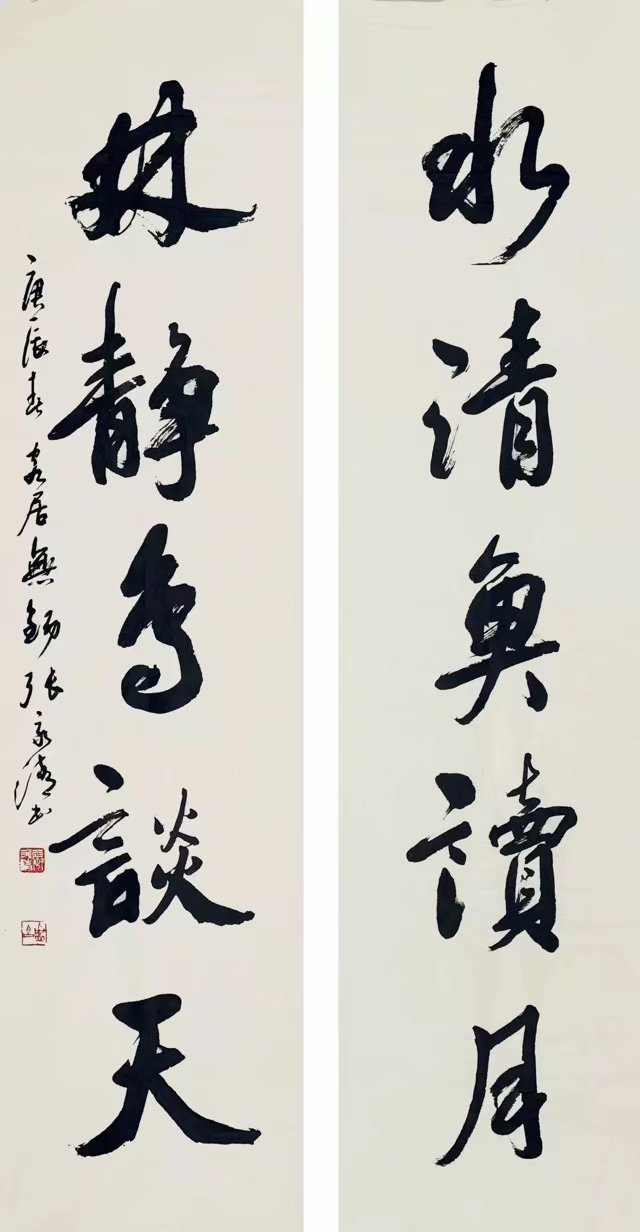 水清魚讀月
林靜鳥談天
庚辰春客居無錫張家清書